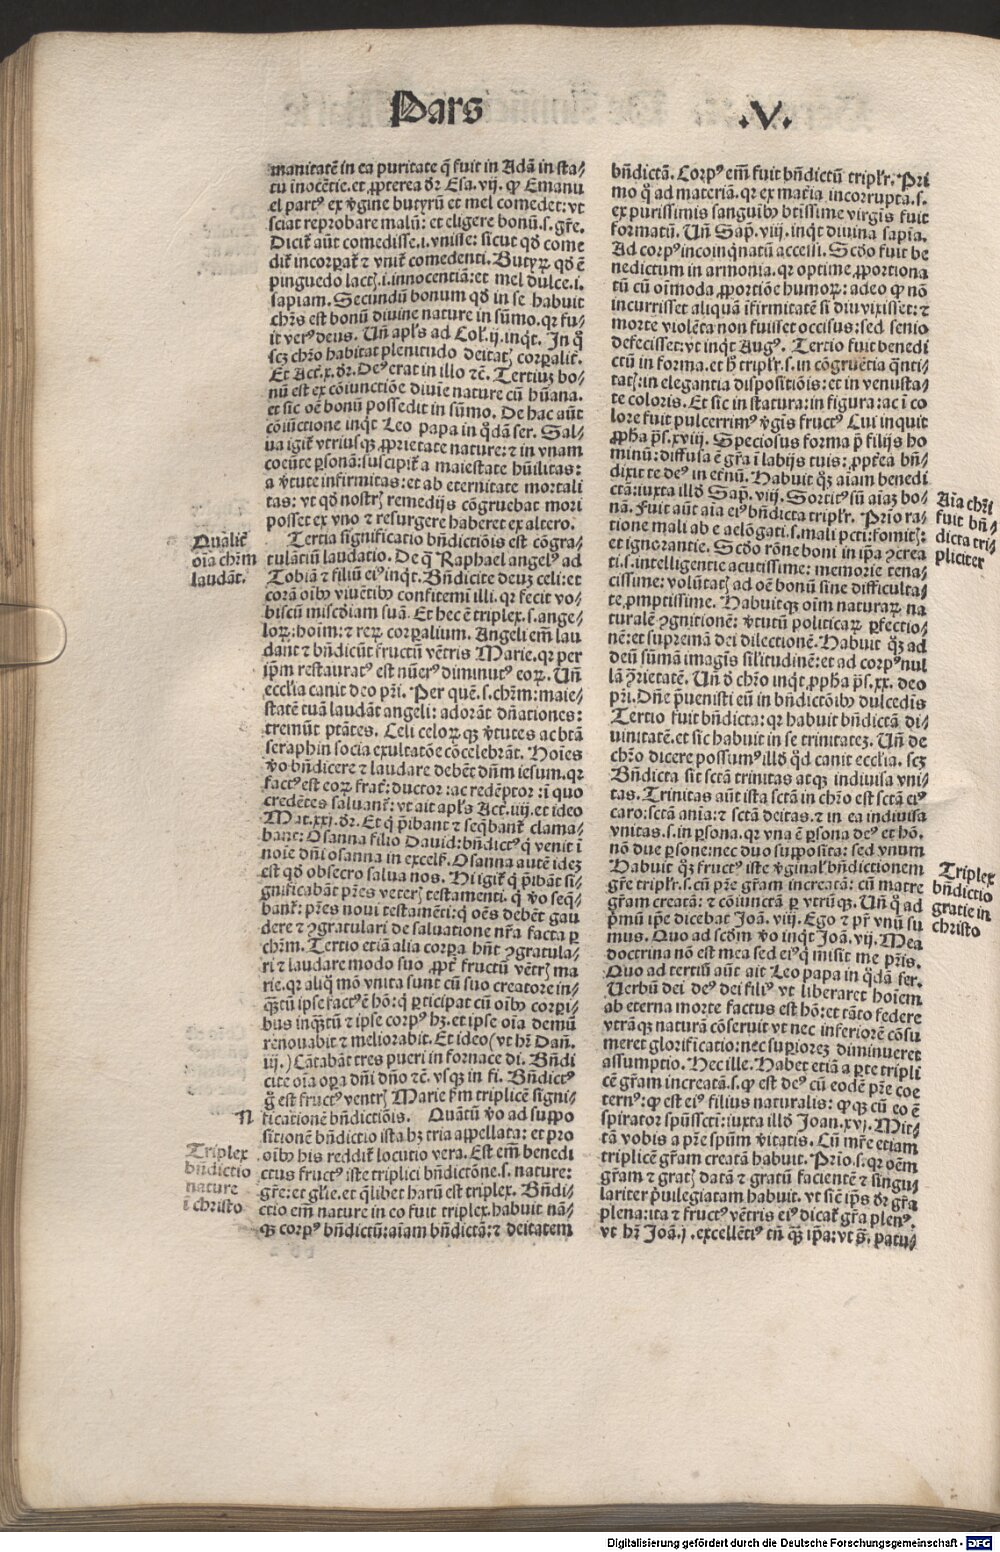 Pars .V.
manitatē in ea puritate q̄ fuit in Adā in sta/
tu inocētie. et ꝓpterea dr̄ Esa. vij. qꝫ Emanu
el partꝰ ex v̄gine butyrū et mel comedet: vt
sciat reprobare malū: et eligere bonū. s. gr̄e.
Dicit̄ aūt comedisse .i. vnisse: sicut qd̄ come
dit̄ incorꝑat̄ ⁊ vnit̄ comedenti. Butyꝝ qd̄ ē
pinguedo lactꝭ .i. innocentiā: et mel dulce .i.
sapiam. Secundū bonum qd̄ in se habuit
chr̄s est bonū diuine nature in sūmo. qr fu/
it verꝰ deus. Uñ apl̄s ad Col̄. ij. inqt. In q̄
scꝫ chr̄o habitat plenitudo deitatꝭ corꝑalit̄.
Et Act̄. x. dr̄. Deꝰ erat in illo ⁊c̄. Tertiuꝫ bo/
nū est ex cōiunctiōe diuie nature cū hūana.
et sic oē bonū possedit in sūmo. De hac aūt
cōiūctione inqt Leo papa in qd̄ā ser. Sal/
ua igit̄ vtriusqꝫ ꝓprietate nature: ⁊ in vnam
coeūte ꝑsonā: suscipit̄ a maiestate hūilitas:
a v̄tute infirmitas: et ab eternitate mortali
tas: vt qd̄ nostrꝭ remedijs cōgruebat mori
posset ex vno ⁊ resurgere haberet ex altero.
Tertia significatio bn̄dictiōis est cōgra/
tulātiū laudatio. De q̄ Raphael angelꝰ ad
Tobiā ⁊ filiū eiꝰ inqt. Bn̄dicite deuꝫ celi: et
corā oībꝰ viuētibꝰ confitemi illi. qr fecit vo/
biscū miscd̄iam suā. Et hec ē triplex. s. ange/
loꝝ: hoim: ⁊ reꝝ corꝑalium. Angeli em̄ lau
dant ⁊ bn̄dicūt fructū vētris Marie. qr per
ip̄m restauratꝰ est nūerꝰ diminutꝰ eoꝝ. Uñ
eccl̄ia canit deo pr̄i. Per quē .s. chr̄m: maie/
statē tuā laudāt angeli: adorāt dn̄ationes:
tremūt ptātes. Celi celoꝝ qꝫ v̄tutes ac btā
seraphin socia exultatōe cōcelebrāt. Hoīes
v̄o bn̄dicere ⁊ laudare debēt dn̄m iesum. qr
factꝰ est eoꝝ frat̄: ductor: ac redēptor: ī quo
credētes saluant̄: vt ait apl̄s Act̄. iiij. et ideo
Mat. xxj. dr̄. Et q̄ p̄ibant ⁊ seq̄bant̄ clama/
bant: Osanna filio Dauid: bn̄dictꝰ q̄ venit ī
noīe dn̄i osanna in excels̄. Osanna autē ideꝫ
est qd̄ obsecro salua nos. Hi igit̄ q̄ p̄ibāt si/
gnificabāt pr̄es veterꝭ testamenti. q̄ v̄o seq̄/
bant̄: pr̄es noui testamēti: q̄ oēs debēt gau
dere ⁊ ꝯgratulari de saluatione nr̄a facta ꝑ
chr̄m. Tertio etiā alia corꝑa hn̄t ꝯgratula/
ri ⁊ laudare modo suo ꝓpt̄ fructū vētrꝭ ma
rie. qr aliq̄ mō vnita sunt cū suo creatore in/
q̄ꝫtū ipse factꝰ ē hō: q̄ ꝑticipat cū oībꝰ corꝑi/
bus inq̄ꝫtū ⁊ ipse corpꝰ hꝫ. et ipse oīa demū
renouabit ⁊ meliorabit. Et ideo (vt hr̄ Dañ.
iij.) Cātabāt tres pueri in fornace di. Bn̄di
cite oīa oꝑa dn̄i dn̄o ⁊c̄. vsqꝫ in fi. Bn̄dictꝰ
g̊ est fructꝰ ventrꝭ Marie ẜm triplicē signi/
ficationē bn̄dictiōis. Quātū v̄o ad suppo
sitionē bn̄dictio ista hꝫ tria appellata: et pro
oībꝰ his reddit̄ locutio vera. Est em̄ benedi
ctus fructꝰ iste triplici bn̄dictōne. s. nature:
gr̄e: et gl̄ie. et q̄libet harū est triplex. Bn̄di/
ctio em̄ nature in eo fuit triplex. habuit nā/
qꝫ corpꝰ bn̄dictū: aīam bn̄dictā: ⁊ deitatem
Qualit̄
oīa chr̄m
laudāt.
N
Triplex
bn̄dictio
nature
ī christo
bn̄dictā. Corpꝰ em̄ fuit bn̄dictū tripl̄r. Pri
mo q̄ ad materiā. qr ex mat̄ia incorrupta. s.
ex purissimis sanguibꝰ btīssime virgīs fuit
formatū. Uñ Sap̄. viij. inqt diuina sapīa.
Ad corpꝰ incoinq̄natū accessi. Scd̄o fuit be
nedictum in armonia. qr optime ꝓportiona
tū cū oīmoda ꝓportiōe humoꝝ: adeo qꝫ nō
incurrisset aliquā īfirmitatē si diu vixisset: ⁊
morte violēta non fuisset occisus: sed senio
defecisset: vt inqt Augꝰ. Tertio fuit benedi
ctū in forma. et h̄ tripl̄r. s. in cōgruētia q̄nti/
tatꝭ: in elegantia dispositiōis: et in venusta/
te coloris. Et sic in statura: in figura: ac ī co
lore fuit pulcerrimꝰ v̄gīs fructꝰ Cui inquit
ꝓph̄a ps̄. xviij. Speciosus forma p̄ filijs ho
minū: diffusa ē gr̄a ī labijs tuis: ꝓpt̄ea bn̄/
dixit te deꝰ in et̄nū. Habuit q̄ꝫ aīam benedi
ctā: iuxta illd̄ Sap̄. viij. Sortitꝰ sū aīaꝫ bo/
nā. Fuit aūt aīa eiꝰ bn̄dicta tripl̄r. Prīo ra/
tione mali ab ea elōgati. s. mali pcti: fomitꝭ:
et ignorantie. Scd̄o rōne boni in ip̄a ꝯcrea
ti. s. intelligentie acutissime: memorie tena/
cissime: volūtatꝭ ad oē bonū sine difficulta/
te ꝓmptissime. Habuitqꝫ oīm naturaꝝ na
turalē ꝯgnitionē: v̄tutū politicaꝝ ꝑfectio/
nē: et supremā dei dilectionē. Habuit q̄ꝫ ad
deū sūmā imagīs silitudinē: et ad corpꝰ nul
lā ꝯrietatē. Uñ d̄ chr̄o inqt ꝓph̄a ps̄. xx. deo
pr̄i. Dn̄e p̄uenisti eū in bn̄dictōibꝰ dulcedīs
Tertio fuit bn̄dicta: qr habuit bn̄dictā di/
uinitatē. et sic habuit in se trinitateꝫ. Uñ de
chr̄o dicere possumꝰ illd̄ qd̄ canit eccl̄ia. scꝫ
Bn̄dicta sit sctā trinitas atqꝫ indiuisa vni/
tas. Trinitas aūt ista sctā in chr̄o est sctā eiꝰ
caro: sctā anīa: ⁊ sctā deitas. ⁊ in ea indiuisa
vnitas. s. in ꝑsona. qr vna ē ꝑsona deꝰ et hō.
nō due ꝑsone: nec duo supposita: sed vnum
Habuit q̄ꝫ fructꝰ iste v̄ginal̄ bn̄dictionem
gr̄e tripl̄r. s. cū pr̄e gr̄am increatā: cū matre
gr̄am creatā: ⁊ cōiunctā ꝑ vtrūqꝫ. Uñ q̄ ad
pꝛ̄mū ip̄e dicebat Joā. viij. Ego ⁊ pr̄ vnū su
mus. Quo ad scd̄m v̄o inqt Joā. vij. Mea
doctrina nō est mea sed eiꝰ q̄ misit me pr̄is.
Quo ad tertiū aūt ait Leo papa in qd̄ā ser.
Uerbū dei deꝰ dei filiꝰ vt liberaret hoīem
ab eterna morte factus est hō: et tāto federe
vtrāqꝫ naturā cōseruit vt nec inferiorē cōsu
meret glorificatio: nec suꝑioreꝫ diminueret
assumptio. Hec ille. Habet etiā a ꝑte tripli
cē gr̄am increatā. s. qꝫ est deꝰ cū eodē pr̄e coe
ternꝰ: qꝫ est eiꝰ filius naturalis: qꝫ qꝫ cū eo ē
spirator spūssctī: iuxta illd̄ Joan. xvj. Mit/
tā vobis a pr̄e spūm v̄itatis. Cū mr̄e etiam
triplicē gr̄am creatā habuit. Prīo. s. qr oēm
gr̄am ⁊ gratꝭ datā ⁊ gratū facientē ⁊ singu/
lariter p̄uilegiatam habuit. vt sic ip̄s dr̄ gr̄a
plena: ita ⁊ fructꝰ vētris eiꝰ dicat̄ gr̄a plenꝰ.
vt hr̄ Joā. j. excellētiꝰ tn̄ q̄ꝫ ip̄a: vt s̄. patu/
Aīa chr̄i
fuit bn̄/
dicta tri/
pliciter
Triplex
bn̄dictio
gratie in
christo
Digitalisierung gefördert durch die Deutsche Forschungsgemeinschaft - DFG